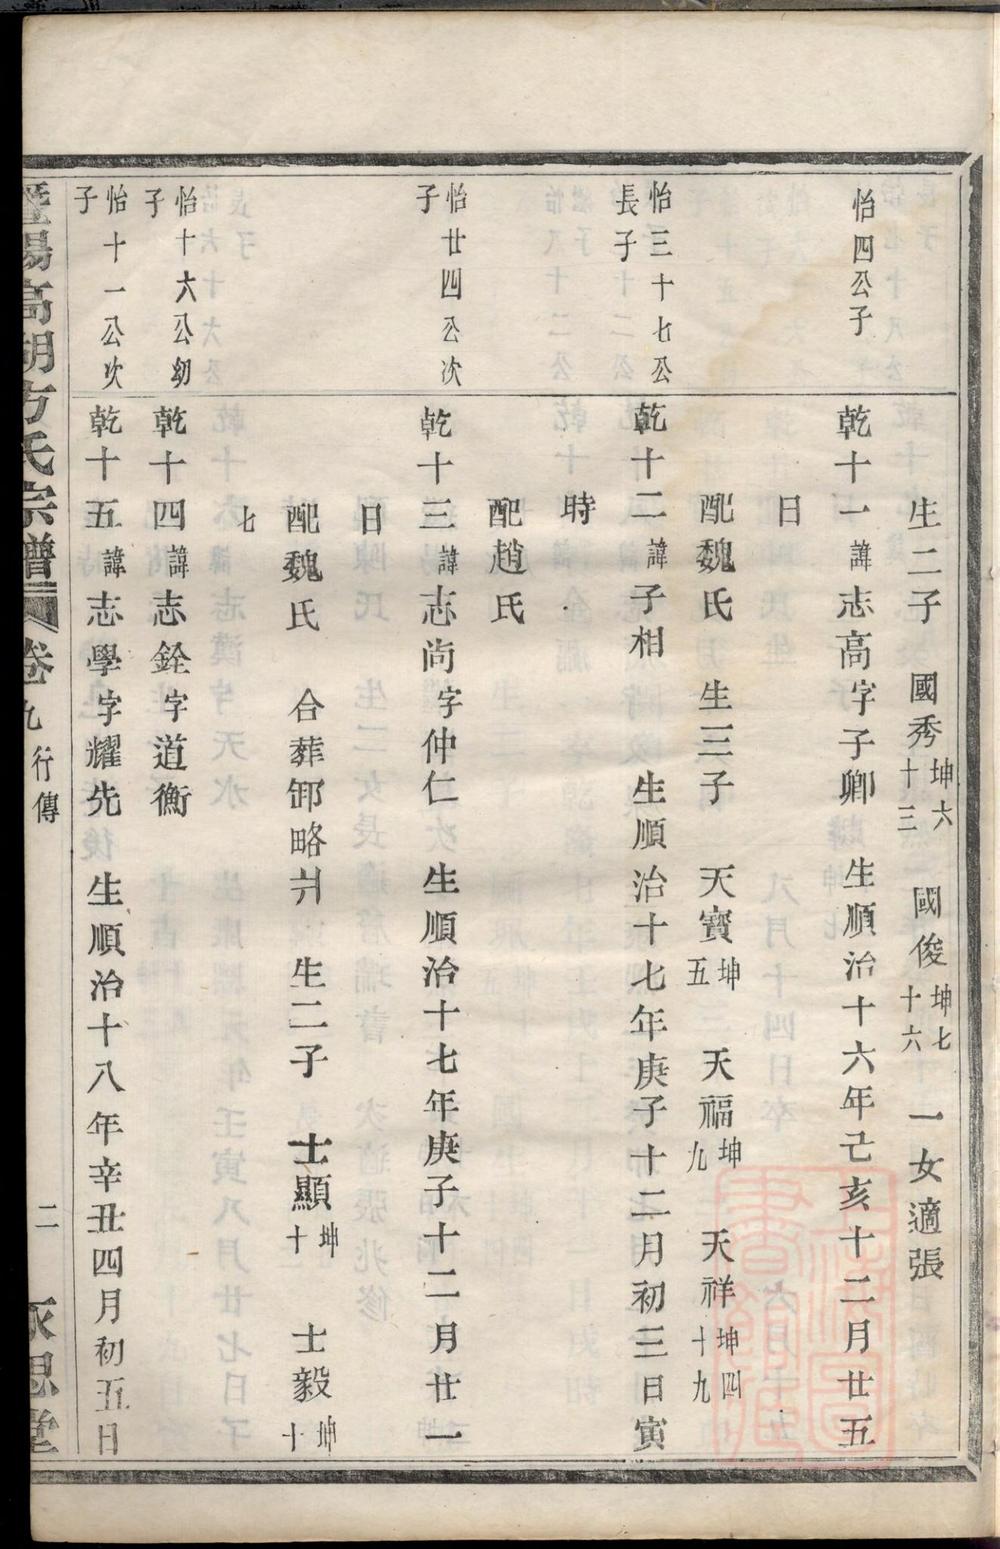 生二子 國秀坤六十三 國俊坤七十六 一女適張
怡四公子
乾十一諱志高字子卿 生順治十六年己亥十二月廿五
日
配魏氏 生三子 天寶坤五 天福坤九 天祥坤四十九
怡三十七公長子
乾十二諱子相 生順治十七年庚子十二月初三日寅
時
配趙氏
怡廿四公次子
乾十三諱志尚字仲仁 生順治十七年庚子十二月廿一
日
配魏氏 合葬卸略爿 生二子 士顯坤十 士毅坤十
七
怡十六公幼子
乾十四諱志銓字道衡
怡十一公次子
乾十五諱志學字耀先 生順治十八年辛丑四月初五日
暨陽高湖方氏宗譜 卷九 行傳 二 永思堂